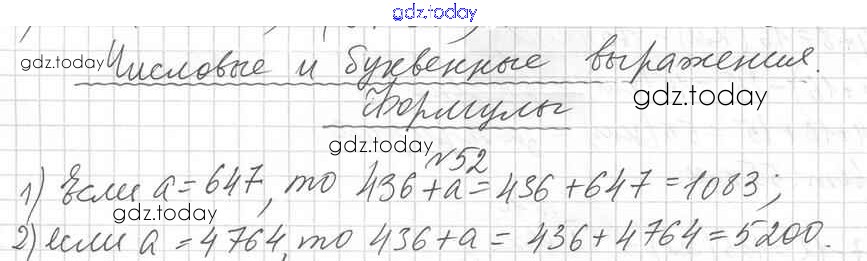 gdz.today
gdz.today Числовые и буквенные выражения.
Формулы gdz.today
gdz.today №52
1) Если a = 647, то 436 + a = 436 + 647 = 1083;
gdz.today
2) если a = 4764, то 436 + a = 436 + 4764 = 5200.